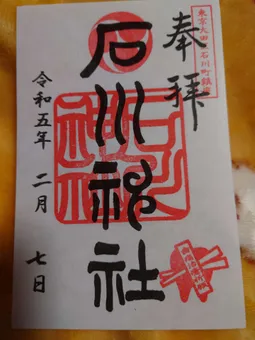 東京大田 石川町鎮座
奉拝
石川神社
令和五年 二月 七日